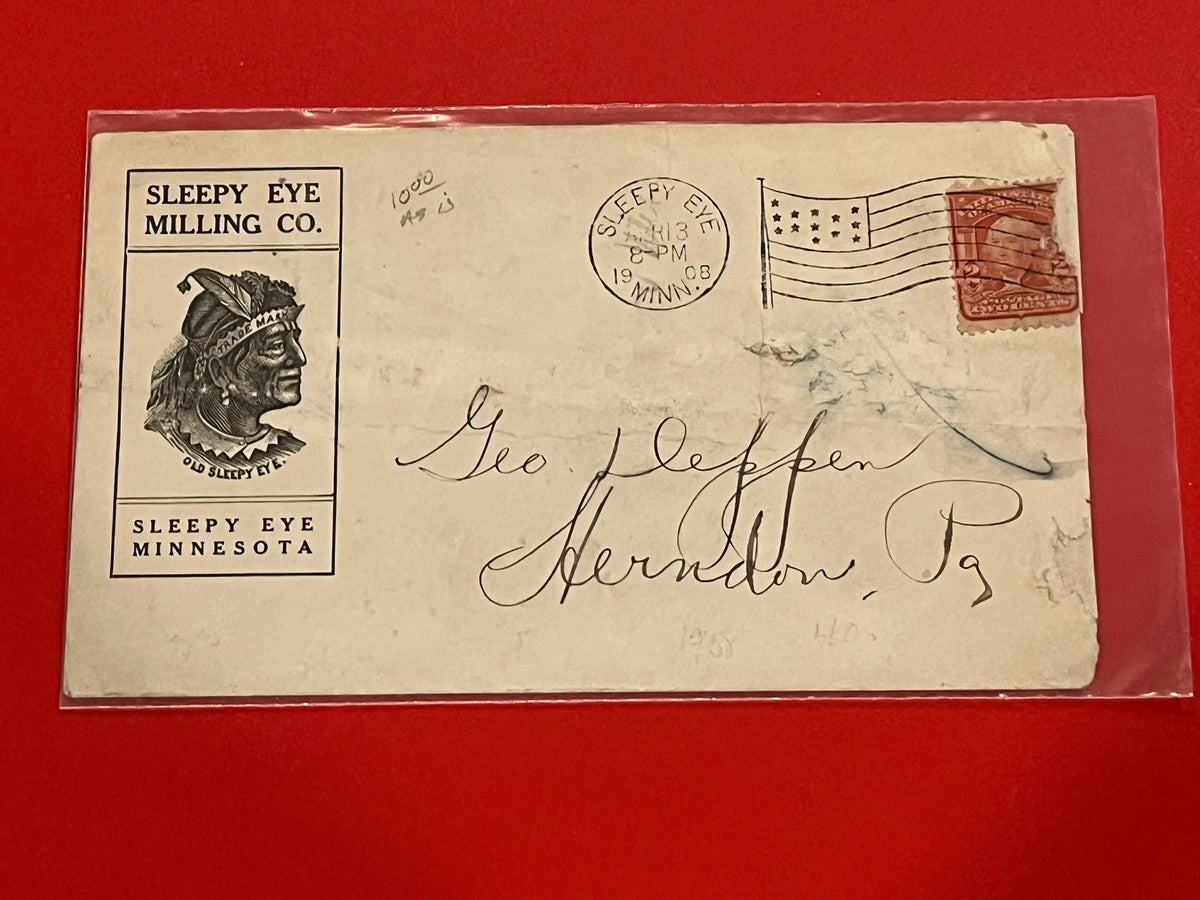 SLEEPY EYE
MILLING CO.
TRADE MARK
OLD SLEEPY EYE.
SLEEPY EYE
MINNESOTA
10 00
As is
SLEEPY EYE
R13
8-PM
1908
MINN.
2
TWO CENTS
Geo. Deppen
Herndon, Pa
1908
40.